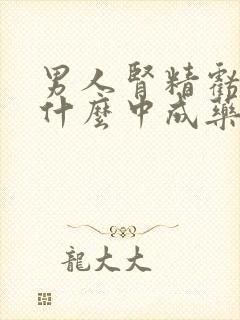 男人腎精虧
什麼中成藥
龍大大